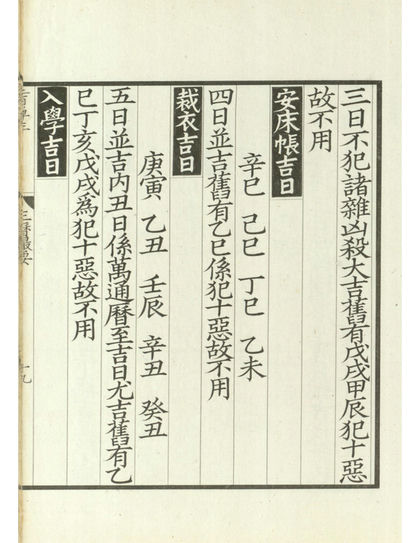 三日不犯諸雜凶殺大吉舊有戊戌甲辰犯十惡
故不用
安床帳吉日
辛巳 己巳 丁巳 乙未
四日並吉舊有乙巳係犯十惡故不用
裁衣吉日
庚寅 乙丑 壬辰 辛丑 癸丑
五日並吉內丑日係萬通曆至吉日尤吉舊有乙
巳丁亥戊戌為犯十惡故不用
入學吉日